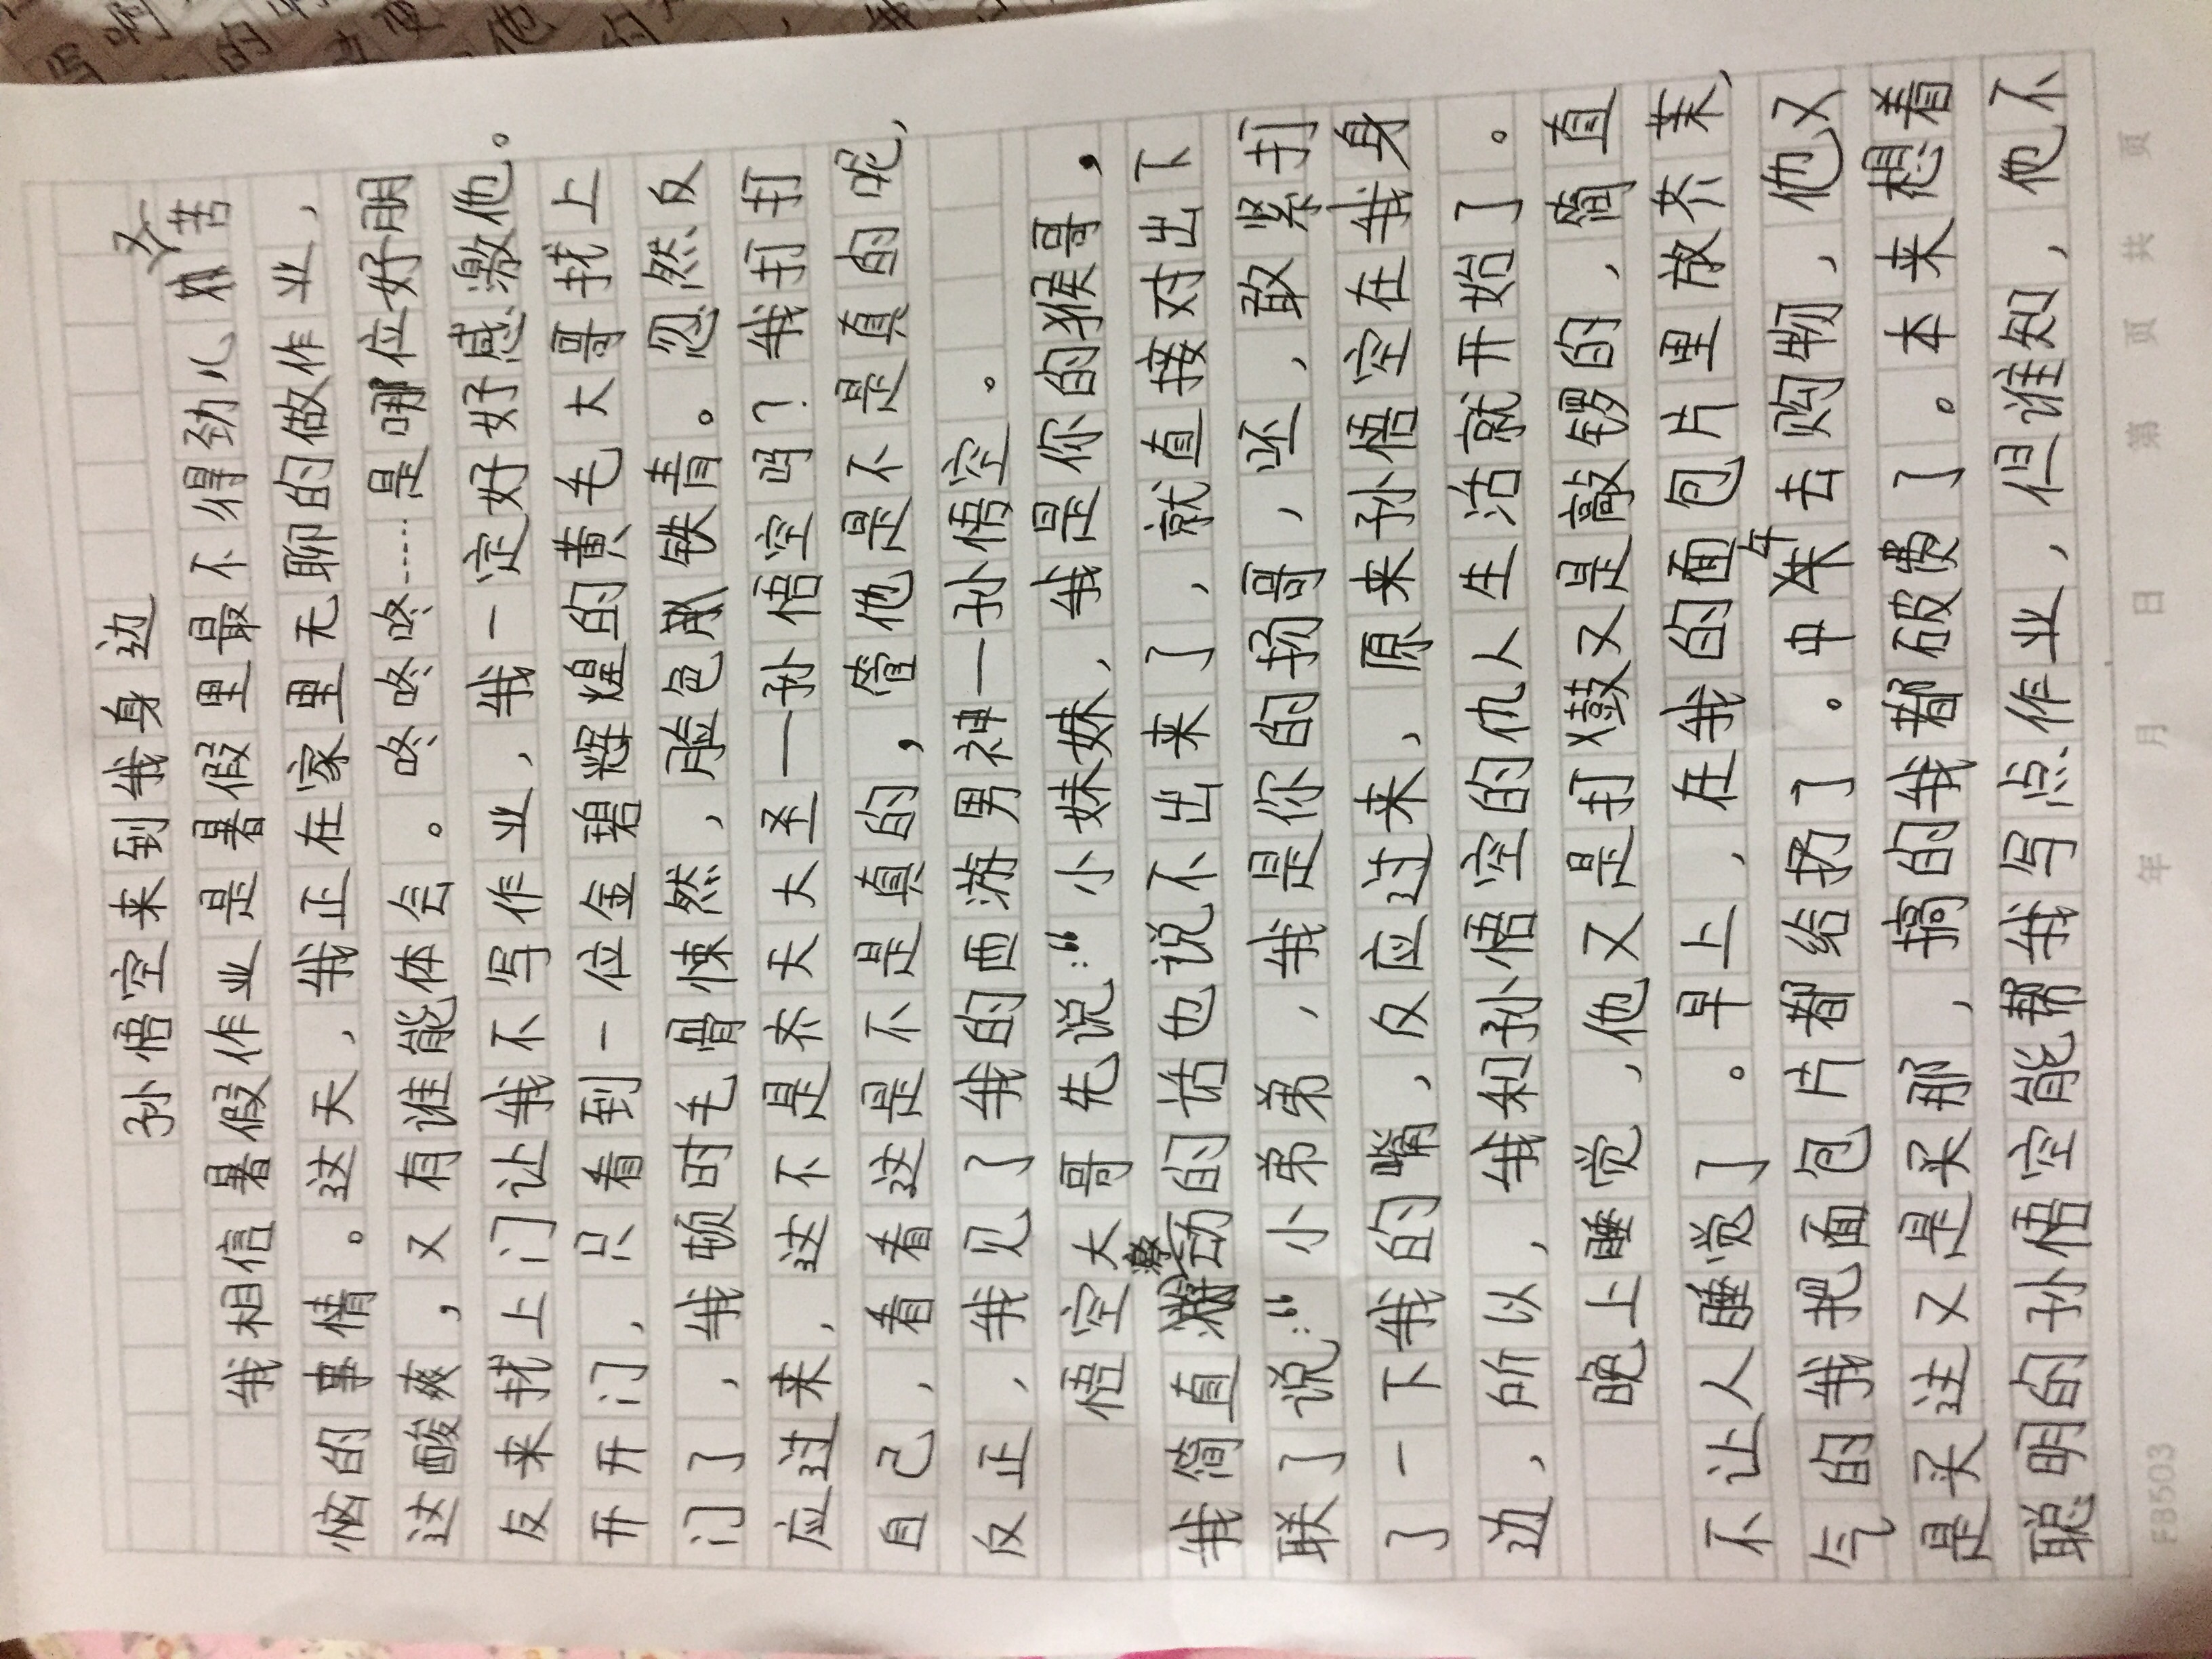 孙悟空来到我身边
我相信暑假作业是暑假里最不得劲儿又苦
恼的事情。这天,我正在家里无聊的做作业,
这酸爽,又有谁能体会。咚咚咚……是哪位好朋
友来找上门让我不写作业,我一定好好感激他。
开开门,只看到一位金碧辉煌的黄毛大哥找上
门了,我顿时毛骨悚然,脸色铁青。忽然反
应过来,这不是齐天大圣—孙悟空吗?我打打
自己,看看这是不是真的,管他是不是真的呢,
反正,我见了我的西游男神—孙悟空。
悟空大哥先说:“小妹妹,我是你的猴哥,
我简直激动的话也说不出来了,就直接对出下
联了说:“小弟弟,我是你的扬哥,坏,敢紧打
了一下我的嘴,反应过来,原来孙悟空在我身
边,所以,我和孙悟空的仇人生活就开始了。
晚上睡觉,他又是打鼓又是敲锣的,简直
不让人睡觉了。早上,在我的面包片里放芥茉,
气的我把面包片都给扔了。中午去购物,他又
是买这又是买那,搞的我都破费了。本来想着
聪明的孙悟空能帮我写点作业,但谁知,他不
年 月 日 第 页 共 页
FB503